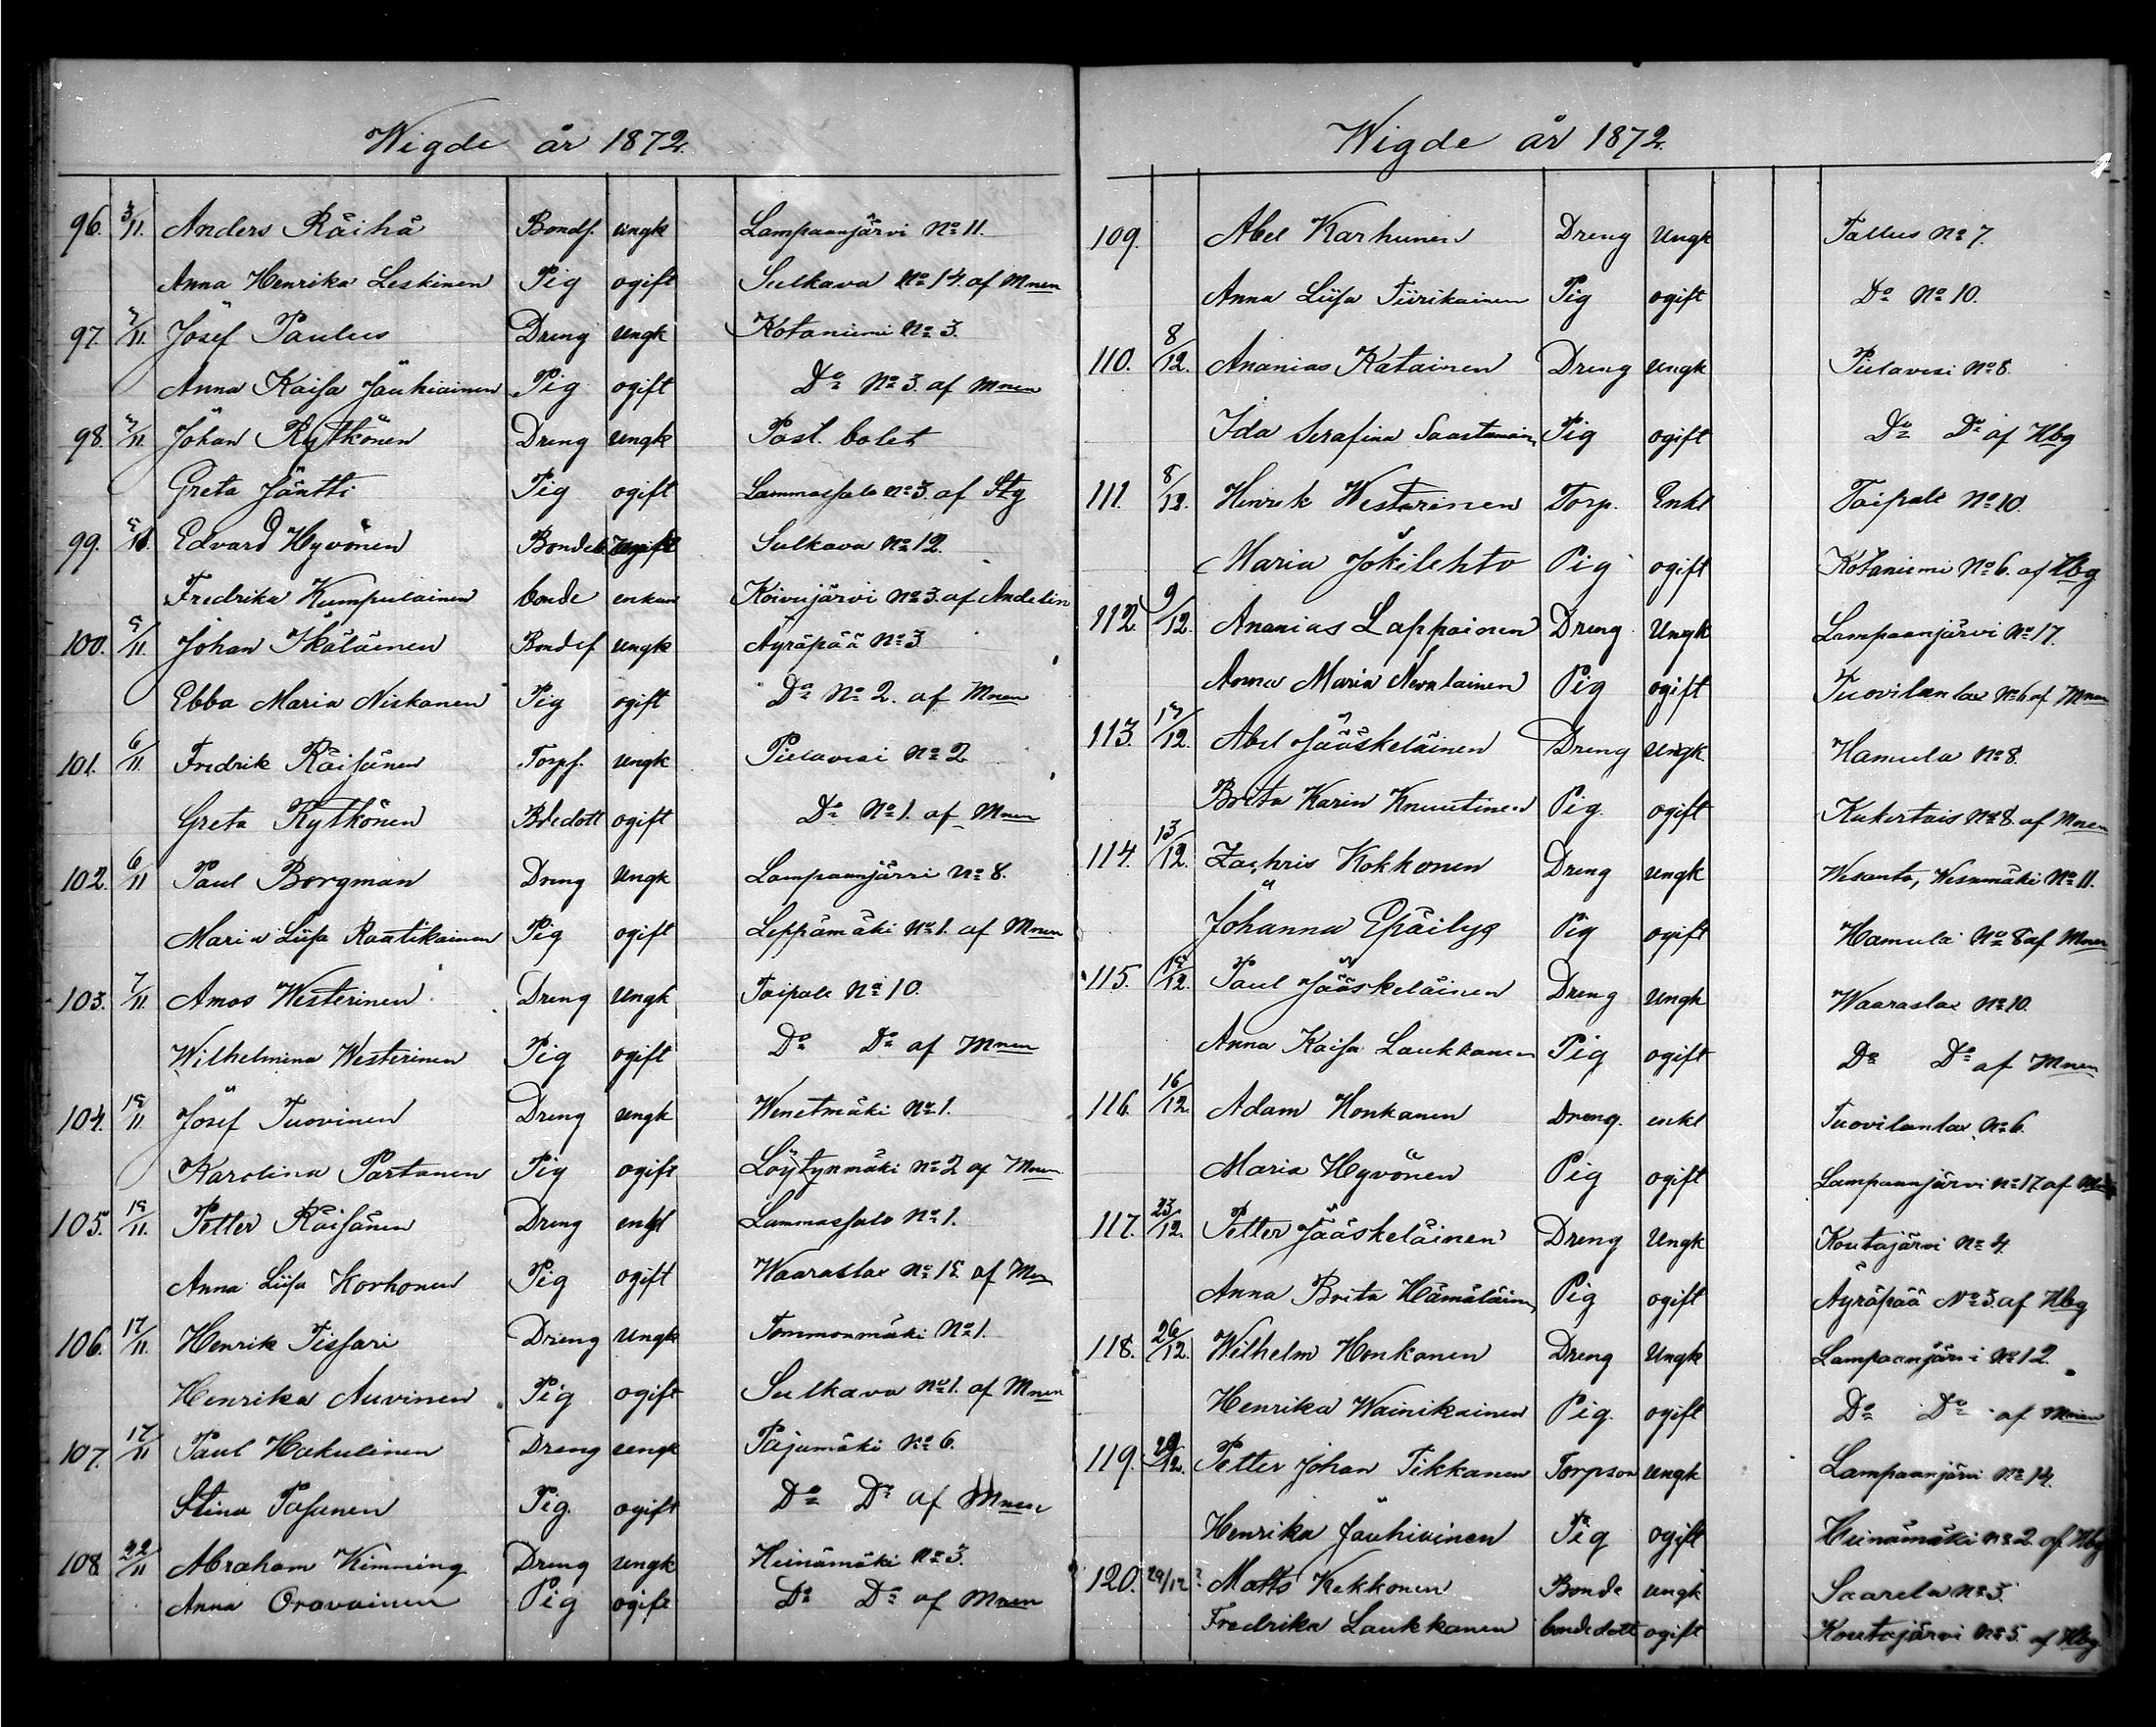 Wigde år 1872.
96. 3/11. Anders Räihä Bondf. ungk Lampaanjärvi No 11.
Anna Henrika Leskinen Pig ogift Sulkava No 14. af Mnen
97. /11. Josef Paulus Dreng ungk Kotaniemi No 3.
Anna Kaisa Jauhiainen Pig ogift Do No 3. af Mnen
98. /11. Johan Rytkönen Dreng ungk Past. bolet
Greta Jäntti Pig ogift Lammassalo No 3. af Stg
99. Edvard Hyvönen Sulkava No 12.
Fredrika Kumpulainen bonde enkan Koivujärvi No 3. af Andelin
100. 5/11. Johan Ikäläinen Bondef ungk Äyräpää No 3
Ebba Maria Niskanen Pig ogift Do No 2. af Mnen
101. 6/11. Fredrik Räisänen Torpf. ungk Pielavesi No 2
Greta Rytkönen Bdedott ogift Do No 1. af Mnen
102. 6/11 Paul Borgman Dreng ungk Lampaanjärvi No 8.
Maria Liisa Raatikainen Pig ogift Leppämäki No 1. af Mnen
103. 7/11. Amos Westerinen Dreng Ungk Taipale No 10.
Wilhelmina Westerinen Pig ogift Do Do af Mnen
104. 15/11 Josef Tuovinen Dreng ungk Wenetmäki No 1.
Karolina Partanen Pig ogift Löytynmäki No 2 af Mnen
105. 15/11. Petter Räisänen Dreng enkl Lammassalo No 1.
Anna Liisa Korhonen Pig ogift Waaraslax No 15. af Mnen
106. 17/11. Henrik Tissari Dreng Ungk Tommonmäki No 1.
Henrika Auvinen Pig ogift Sulkava No 1. af Mnen
107. 17/11 Paul Hakulinen Dreng ungk Pajumäki No 6.
Stina Pasanen Pig. ogift Do Do af Mnen
108 22/11 Abraham Kimming Dreng ungk Heinämäki No 3.
Anna Oravainen Pig ogift Do Do af Mnen
Wigde år 1872.
109. Abel Karhunen Dreng Ungk Tallus No 7.
Anna Liisa Tiirikainen Pig ogift Do No 10.
110. 8/12. Ananias Katainen Dreng ungk Pielavesi No 8.
Ida Serafina Saastamoin Pig ogift Do Do af Hbg
111. 8/12. Henrik Westerinen Torp. Enkl Taipale No 10.
Maria Jokilehto Pig ogift Kotaniemi No 6. af Hbg
112 9/12. Ananias Lappainen Dreng Ungk Lampaanjärvi No 17.
Anna Maria Nevalainen Pig ogift Tuovilanlax No 6 af Mnen
113. /12. Abel Jääskeläinen Dreng ungk Hamula No 8.
Brita Karin Knuutinen Pig. ogift Kukertais No 8. af Mnen
114. 13/12. Zachris Kokkonen Dreng ungk Wesanto, Wesamäki No 11.
Johanna Epäilys Pig ogift Hamula No 8 af Mnen
115. 15/12. Paul Jääskeläinen Dreng ungk Waaraslax No 10.
Anna Kaisa Laukkanen Pig ogift Do Do af Mnen
116. 16/12 Adam Honkanen Dreng. enkl Tuovilanlax No 6.
Maria Hyvönen Pig ogift Lampaanjärvi No 17 af
117. 23/12. Petter Jääskeläinen Dreng Ungk Koutajärvi No 4.
Anna Brita Hämäläinen Pig ogift Äyräpää No 3. af Hbg
118. 26/12. Wilhelm Honkanen Dreng Ungk Lampaanjärvi No 12.
Henrika Wainikainen Pig. ogift Do Do af Mnen
119. /12. Petter Johan Tikkanen Torpson ungk Lampaanjärvi No 14.
Henrika Jauhiainen Pig ogift Heinämäki No 2. af Hbg
120. 29/12 Matts Kekkonen Bonde ungk Saarela No 3.
Fredrika Laukkanen bondedott ogift Koutajärvi No 5. af Hbg